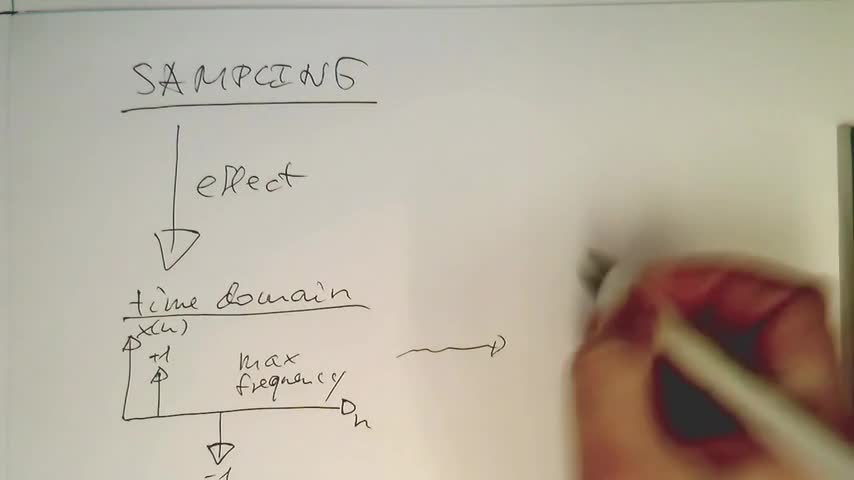 SAMPLING
effect
time domain
x(n)
+1
max
frequency
n
-1